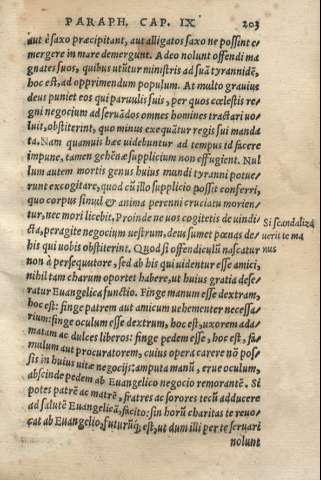 PARAPH. CAP. IX 203
aut è saxo præcipitant, aut alligatos saxo ne possint e/
mergere in mare demergunt. Adeo nolunt offendi ma
gnates suos, quibus utũtur ministris ad suã tyrannidẽ,
hoc est, ad opprimendum populum. At multo grauius
deus puniet eos qui paruulis suis, per quos cœlestis re/
gni negocium ad seruãdos omnes homines tractari uo/
luit, obstiterint, quo minus exequãtur regis sui manda
ta. Nam quamuis hæc uidebuntur ad tempus id facere
impune, tamen gehẽnæ supplicium non effugient. Nul
lum autem mortis genus huius mundi tyranni potue/
runt excogitare, quod cũ illo supplicio possit conferri,
quo corpus simul & anima perenni cruciatu morien/
tur, nec mori licebit, Proinde ne uos cogitetis de uindi/
cta, peragite negocium uestrum, deus sumet pœnas de
his qui uobis obstiterint. Quod si offendiculũ nascatur
non à persequutore, sed ab his qui uidentur esse amici,
nihil tam charum oportet habere, ut huius gratia dese/
ratur Euangelica functio. Finge manum esse dextram,
hoc est: finge patrem aut amicum uehementer necessa/
rium: finge oculum esse dextrum, hoc est, uxorem ada/
matam ac dulces liberos: finge pedem esse, hoc est, fa/
mulum aut procuratorem, cuius opera carere nõ pos/
sis in huius uitæ negocijs: amputa manũ, erue oculum,
abscinde pedem ab Euangelico negocio remorantẽ. Si
potes patrẽ ac matrẽ, fratres ac sorores tecũ adducere
ad salutẽ Euangelicã, facito: sin horũ charitas te reuo/
cat ab Euangelio, futurũq; est, ut dum illi per te seruari
nolunt
Si scandalizã
uerit te ma
nus